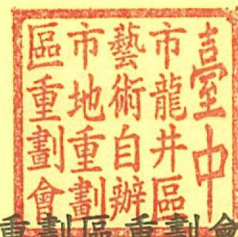 臺中
市龍井區
藝術自辦
市地重劃
區重劃會
重劃區重劃會